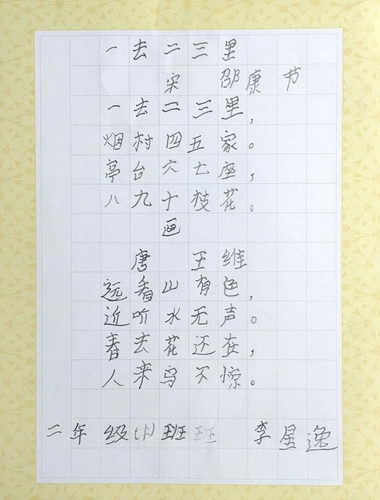 一去二三里
宋 邵康节
一去二三里，
烟村四五家。
亭台六七座，
八九十枝花。
画
唐 王维
远看山有色，
近听水无声。
春去花还在，
人来鸟不惊。
二年级(1)班班 李星逸